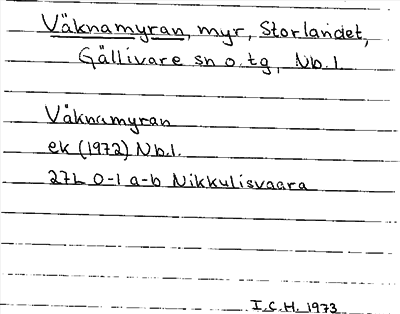 Väknamyran, myr, Storlandet,
Gällivare sn o. tg, Nb. l.
Väknamyran
ek (1972) Nb.l.
27L 0-1 a-b Nikkulisvaara
I.C.H. 1973